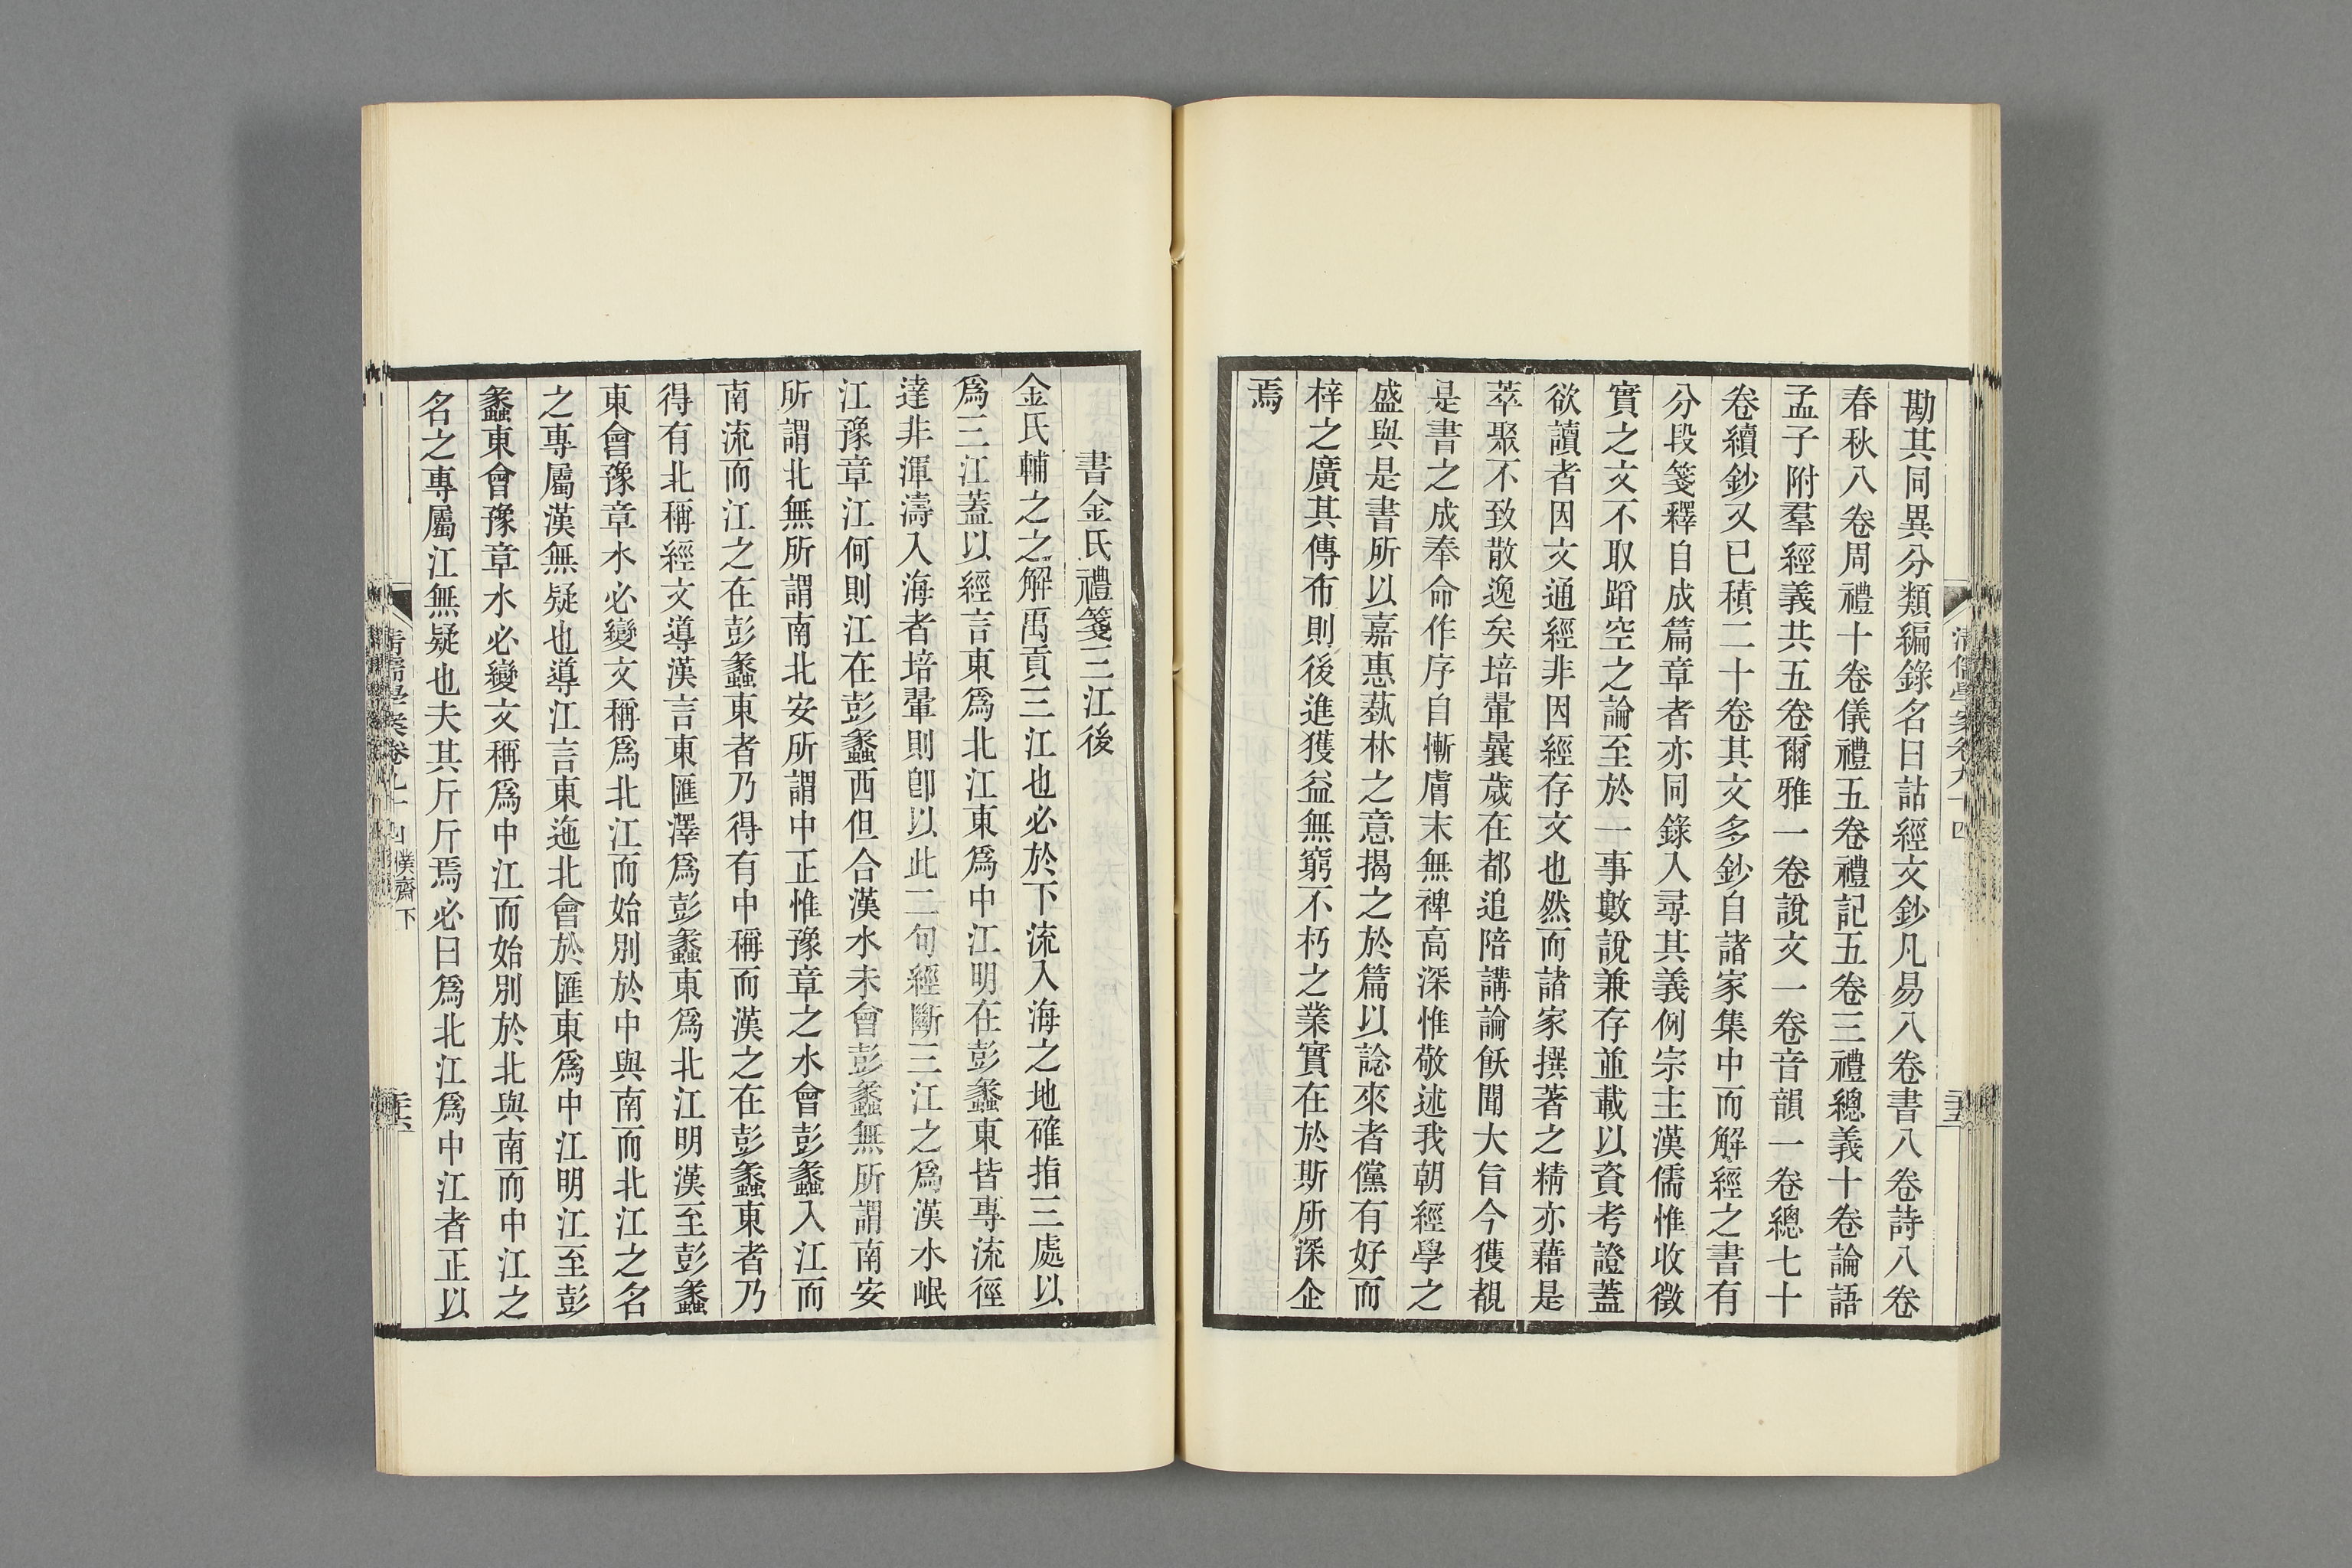 勘其同異分類編錄名曰詁經文鈔凡易八卷書八卷詩八卷
春秋八卷周禮十卷儀禮五卷禮記五卷三禮總義十卷論語
孟子附羣經義共五卷爾雅一卷說文一卷音韻一卷總七十
卷續鈔又已積二十卷其文多鈔自諸家集中而解經之書有
分段箋釋自成篇章者亦同錄入尋其義例宗主漢儒惟收徵
實之文不取蹈空之論至於一事數說兼存並載以資考證蓋
欲讀者因文通經非因經存文也然而諸家撰著之精亦藉是
萃聚不致散逸矣培翬曩歲在都追陪講論飫聞大旨今獲覩
是書之成奉命作序自慚膚末無裨高深惟敬述我朝經學之
盛與是書所以嘉惠蓺林之意揭之於篇以諗來者儻有好而
梓之廣其傳布則後進獲益無窮不朽之業實在於斯所深企
焉
清儒學案卷九十四
書金氏禮箋三江後
金氏輔之之解禹貢三江也必於下流入海之地確指三處以
爲三江蓋以經言東爲北江東爲中江明在彭蠡東皆專流徑
達非渾濤入海者培翬則卽以此二句經斷三江之爲漢水岷
江豫章江何則江在彭蠡西但合漢水未會彭蠡無所謂南安
所謂北無所謂南北安所謂中正惟豫章之水會彭蠡入江而
南流而江之在彭蠡東者乃得有中稱而漢之在彭蠡東者乃
得有北稱經文導漢言東匯澤爲彭蠡東爲北江明漢至彭蠡
東會豫章水必變文稱爲北江而始別於中與南而北江之名
之專屬漢無疑也導江言東迆北會於匯東爲中江明江至彭
蠡東會豫章水必變文稱爲中江而始別於北與南而中江之
名之專屬江無疑也夫其斤斤焉必曰爲北江爲中江者正以
清儒學案卷九十四 樸齋下